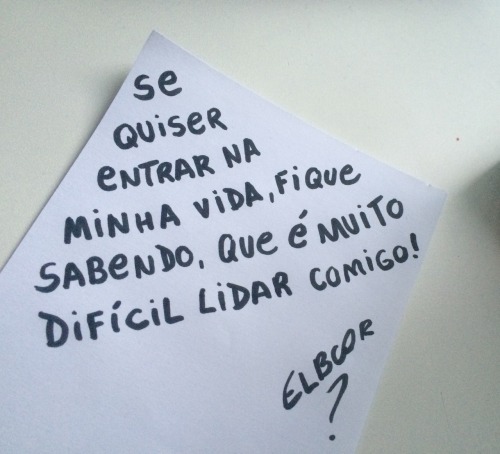 Se
QUISER
ENTRAR NA
MINHA VIDA, FIQUE
SABENDO, QUE É MUITO
DIFÍCIL LIDAR COMIGO!
ELBCOR
?